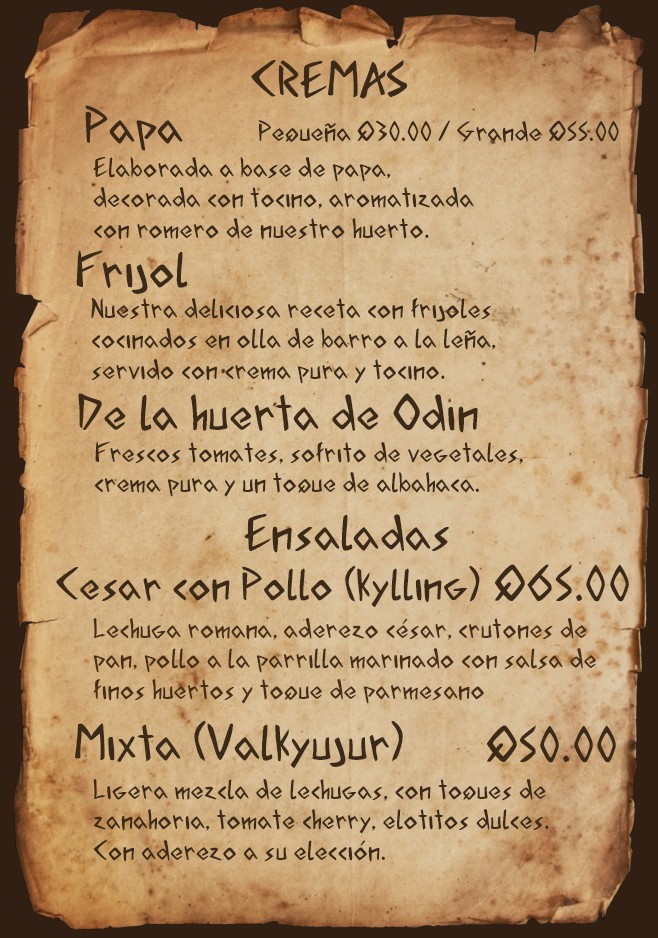 CREMAS
Papa Pequeña Q30.00 / Grande Q55.00
Elaborada a base de papa,
decorada con tocino, aromatizada
con romero de nuestro huerto.
Frijol
Nuestra deliciosa receta con frijoles
cocinados en olla de barro a la leña,
servido con crema pura y tocino.
De la huerta de Odin
Frescos tomates, sofrito de vegetales,
crema pura y un toque de albahaca.
Ensaladas
Cesar con Pollo (Kylling) Q65.00
Lechuga romana, aderezo césar, crutones de
pan, pollo a la parrilla marinado con salsa de
finos huertos y toque de parmesano
Mixta (Valkyujur) Q50.00
Ligera mezcla de lechugas, con toques de
zanahoria, tomate cherry, elotitos dulces.
Con aderezo a su elección.